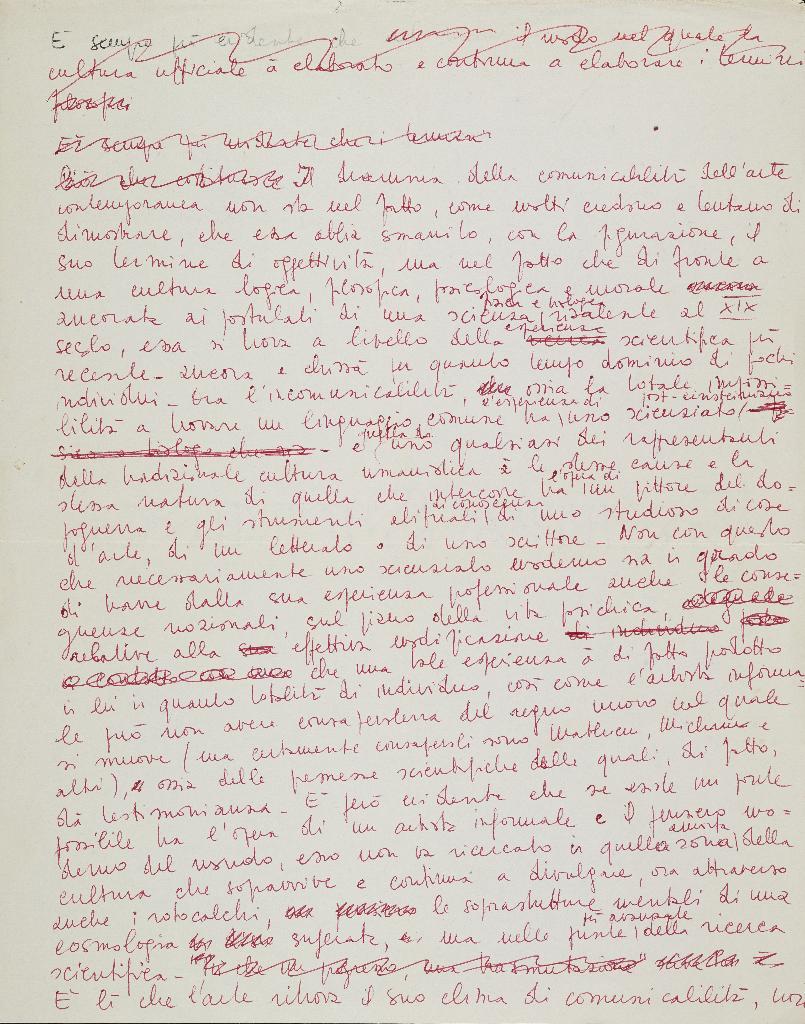 È sempre più evidente che il modo nel quale la
cultura ufficiale à elaborato e continua a elaborare i termini
filosofici
È sempre più che i termini
Il dramma della comunicabilità dell'arte
contemporanea non sta nel fatto, come molti credono e tentano di
dimostrare, che essa abbia smarrito, con la figurazione, il
suo termine di oggettività, ma nel fatto che di fronte a
una cultura logica, filosofica, psicologica e morale
ancorata ai postulati di una scienza fisica e biologica risalente al XIX
secolo, essa si trova a livello della esperienza scientifica più
recente - ancora e chissà per quanto tempo dominio di pochi
individui. Ora l'incomunicabilità, ossia la totale impossi=
bilità a trovare un linguaggio comune tra l'esperienza di uno scienziato post-einsteiniano
e quella di uno qualsiasi dei rappresentanti
della tradizionale cultura umanistica à le stesse cause e la
stessa natura di quella che intercorre tra l'opera di un pittore del do=
poguerra e gli strumenti abituali di conoscenza di uno studioso di cose
d'arte, di un letterato o di uno scrittore. Non con questo
che necessariamente uno scienziato moderno sia in grado
di trarre dalla sua esperienza professionale anche le conse=
guenze nozionali, sul piano della vita psichica,
relative alla effettiva modificazione di individuo
che una tale esperienza à di fatto prodotto
in lui in quanto totalità di individuo, così come l'artista informa=
le può non avere consapevolezza del segno nuovo nel quale
si muove (ma certamente consapevoli sono Mathieu, Michaux e
altri), ossia delle premesse scientifiche delle quali, di fatto,
dà testimonianza. È però evidente che se esiste un ponte
possibile tra l'opera di un artista informale e il pensiero mo=
derno del mondo, esso non va ricercato in quella zona della
cultura che sopravvive e continua a divulgare, ora attraverso
anche i rotocalchi, le soprastrutture mentali di una
cosmologia superata, ma nelle punte più avanzate della ricerca
scientifica.
È lì che l'arte ritrova il suo clima di comunicabilità, non